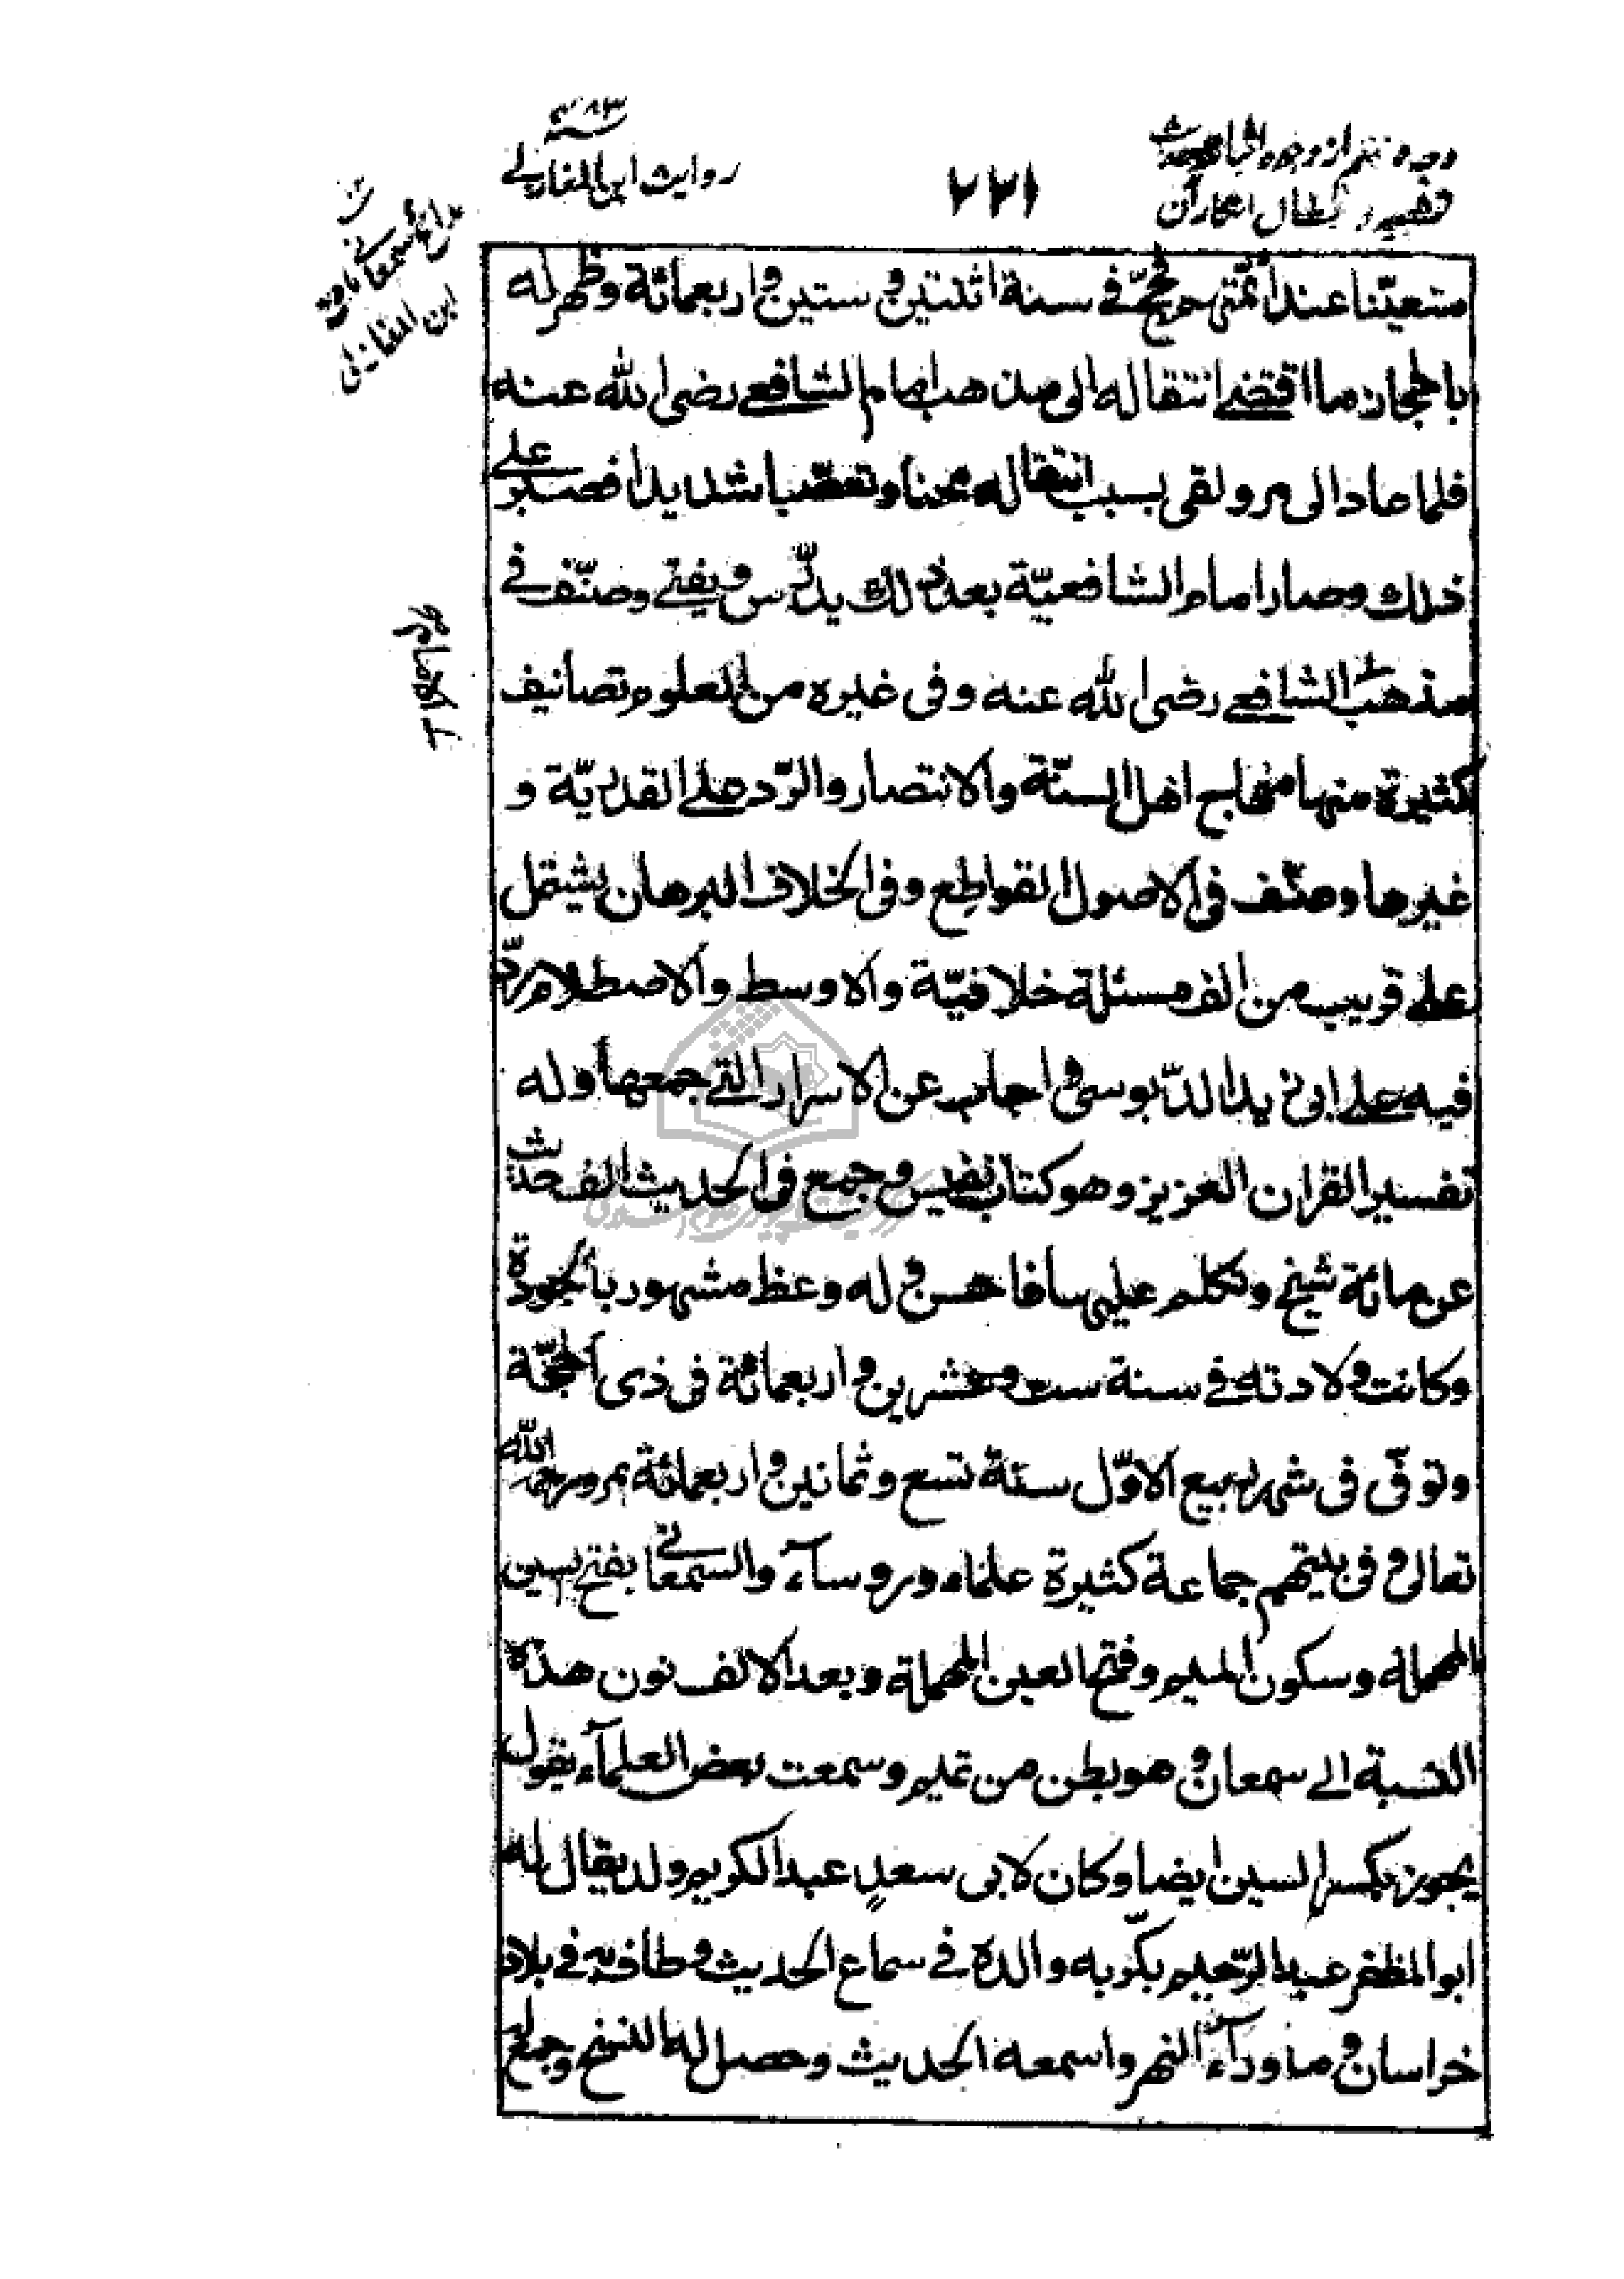 روایت ابن المغازلی
۲۲۱
متعیّنا عند ائمّتهم و حجّ فی سنة اثنتین و ستین و اربعمائة و ظهر له
بالحجاز ما اقتضی انتقاله الی مذهب امام الشافعی رضی الله عنه
فلما عاد الی مرو لقی بسبب انتقاله محنا و تعصّبا شدیدا فصبر علی
ذلك و صار امام الشافعیّة بعد ذلك یدرّس و یفتی و صنّف فی
مذهب الشافعی رضی الله عنه و فی غیره من العلوم تصانیف
کثیرة منها منهاج اهل السنّة والانتصار والرّد علی القدریّة و
غیرها و صنّف فی الاصول القواطع و فی الخلاف البرهان یشتمل
علی قریب من الف مسئلة خلافیّة والاوسط والاصطلام ردّ
فیه علی ابی زید الدّبوسی و اجاب عن الاسرار التی جمعها و له
تفسیر القران العزیز و هو کتاب نفیس و جمع فی الحدیث الف حدیث
عن مائة شیخ و تکلم علیها فاحسن و له وعظ مشهور بالجودة
و کانت ولادته فی سنة ست و عشرین و اربعمائة فی ذی الحجّة
و توفّی فی شهر ربیع الاوّل سنة تسع و ثمانین و اربعمائة بمرو رحمه الله
تعالی و فی بیتهم جماعة کثیرة علماء و روسآء والسمعانی بفتح السین
المهملة و سکون المیم و فتح العین المهملة و بعد الالف نون هذه
النسبة الی سمعان و هو بطن من تمیم و سمعت بعض العلمآء یقول
یجوز بکسر السین ایضا و کان لابی سعدٍ عبد الکریم ولد یقال له
ابو المظفر عبد الرّحیم بکّر به والده فی سماع الحدیث و طاف به فی بلاد
خراسان و ما ورآء النهر و اسمعه الحدیث و حصل له النسخ و جمع له